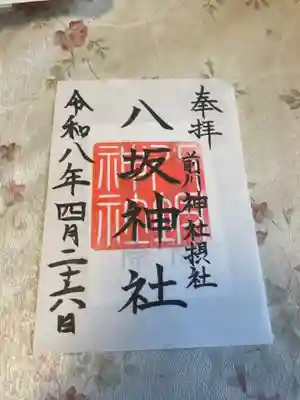 奉拝
前川神社摂社
八坂神社
令和八年四月二十六日